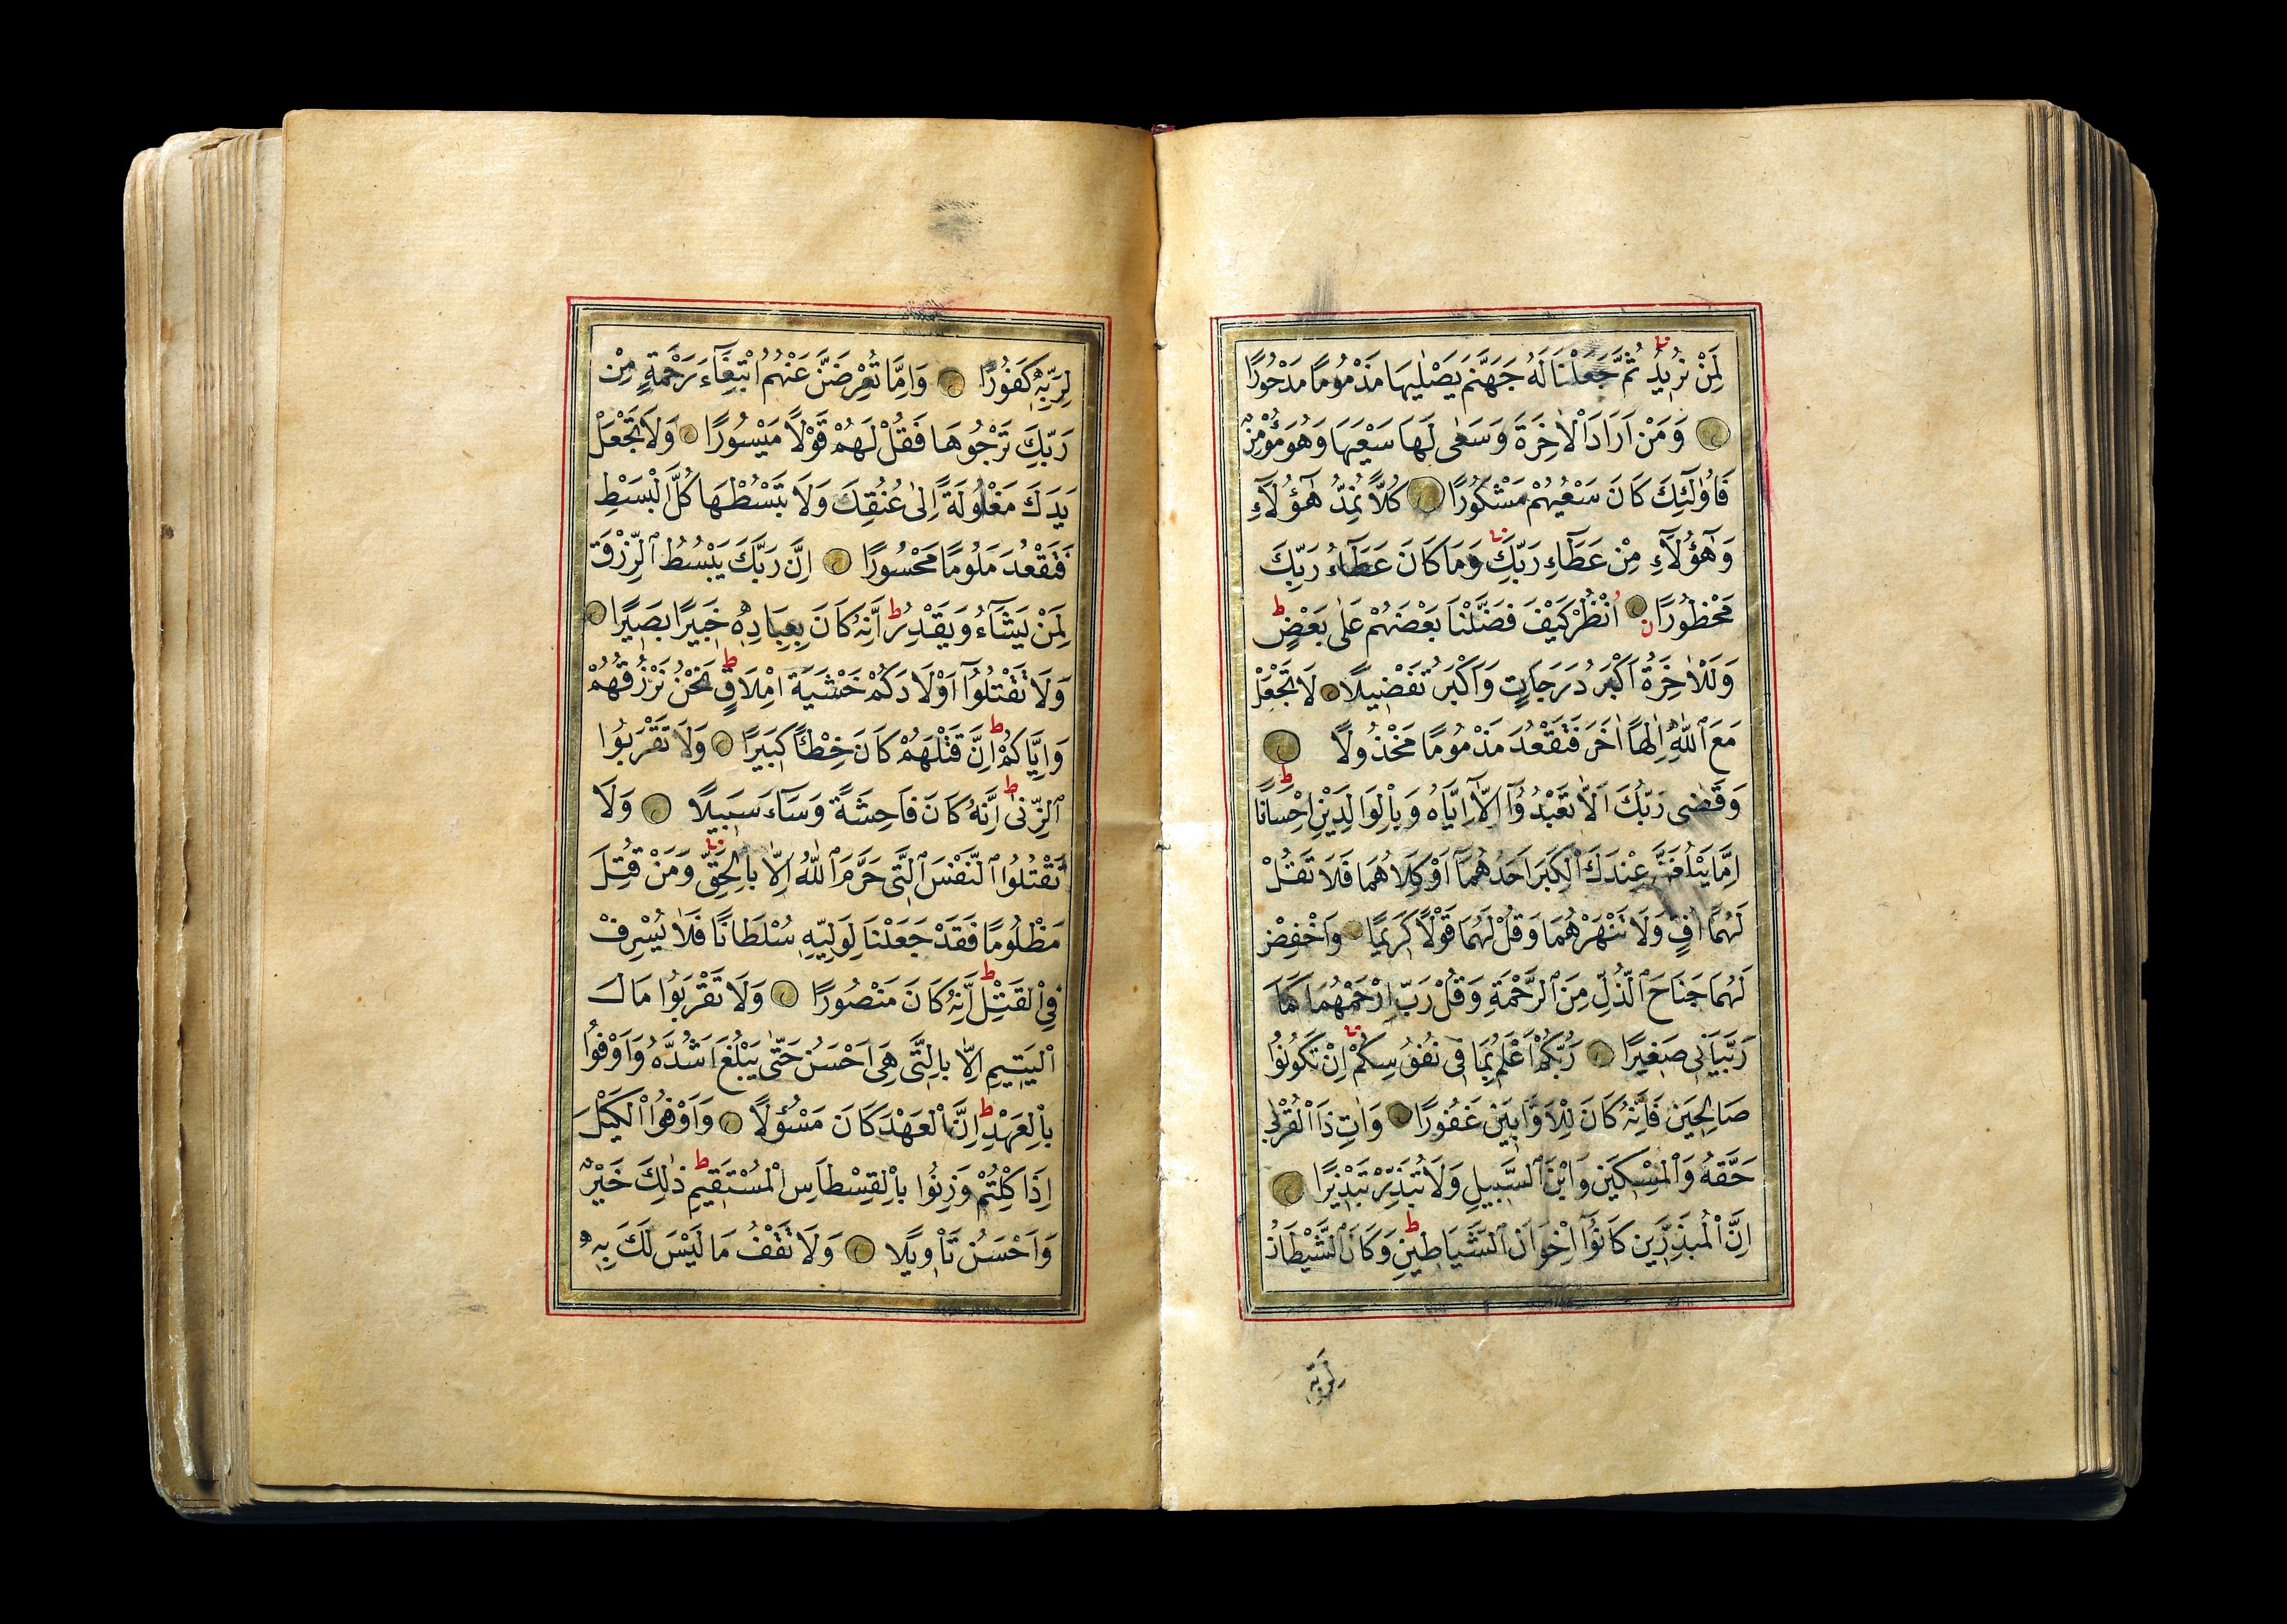 لِمَنْ نُرِيدُ ثُمَّ جَعَلْنَا لَهُ جَهَنَّمَ يَصْلٰيهَا مَذْمُومًا مَدْحُورًا
وَمَنْ اَرَادَ الْاٰخِرَةَ وَسَعٰى لَهَا سَعْيَهَا وَهُوَ مُؤْمِنٌ
فَاُولٰٓئِكَ كَانَ سَعْيُهُمْ مَشْكُورًا كُلًّا نُمِدُّ هٰٓؤُلَاۤءِ
وَهٰٓؤُلَاۤءِ مِنْ عَطَاۤءِ رَبِّكَ وَمَا كَانَ عَطَاۤءُ رَبِّكَ
مَحْظُورًا اُنْظُرْ كَيْفَ فَضَّلْنَا بَعْضَهُمْ عَلٰى بَعْضٍ
وَلَلْاٰخِرَةُ اَكْبَرُ دَرَجَاتٍ وَاَكْبَرُ تَفْضِيلًا لَا تَجْعَلْ
مَعَ اللّٰهِ اِلٰهًا اٰخَرَ فَتَقْعُدَ مَذْمُومًا مَخْذُولًا
وَقَضٰى رَبُّكَ اَلَّا تَعْبُدُوۤا اِلَّاۤ اِيَّاهُ وَبِالْوَالِدَيْنِ اِحْسَانًا
اِمَّا يَبْلُغَنَّ عِنْدَكَ الْكِبَرَ اَحَدُهُمَاۤ اَوْ كِلَاهُمَا فَلَا تَقُلْ
لَهُمَاۤ اُفٍّ وَلَا تَنْهَرْهُمَا وَقُلْ لَهُمَا قَوْلًا كَرِيمًا وَاخْفِضْ
لَهُمَا جَنَاحَ الذُّلِّ مِنَ الرَّحْمَةِ وَقُلْ رَبِّ ارْحَمْهُمَا كَمَا
رَبَّيَانِي صَغِيرًا رَبُّكُمْ اَعْلَمُ بِمَا فِي نُفُوسِكُمْ اِنْ تَكُونُوا
صَالِحِينَ فَاِنَّهُ كَانَ لِلْاَوَّابِينَ غَفُورًا وَاٰتِ ذَا الْقُرْبٰى
حَقَّهُ وَالْمِسْكِينَ وَابْنَ السَّبِيلِ وَلَا تُبَذِّرْ تَبْذِيرًا
اِنَّ الْمُبَذِّرِينَ كَانُوۤا اِخْوَانَ الشَّيَاطِينِ وَكَانَ الشَّيْطَانُ
لِرَبِّهِ
لِرَبِّهِ كَفُورًا وَاِمَّا تُعْرِضَنَّ عَنْهُمُ ابْتِغَاۤءَ رَحْمَةٍ مِنْ
رَبِّكَ تَرْجُوهَا فَقُلْ لَهُمْ قَوْلًا مَيْسُورًا وَلَا تَجْعَلْ
يَدَكَ مَغْلُولَةً اِلٰى عُنُقِكَ وَلَا تَبْسُطْهَا كُلَّ الْبَسْطِ
فَتَقْعُدَ مَلُومًا مَحْسُورًا اِنَّ رَبَّكَ يَبْسُطُ الرِّزْقَ
لِمَنْ يَشَاۤءُ وَيَقْدِرُ اِنَّهُ كَانَ بِعِبَادِهِ خَبِيرًا بَصِيرًا
وَلَا تَقْتُلُوۤا اَوْلَادَكُمْ خَشْيَةَ اِمْلَاقٍ نَحْنُ نَرْزُقُهُمْ
وَاِيَّاكُمْ اِنَّ قَتْلَهُمْ كَانَ خِطْـًٔا كَبِيرًا وَلَا تَقْرَبُوا
الزِّنٰى اِنَّهُ كَانَ فَاحِشَةً وَسَاۤءَ سَبِيلًا وَلَا
تَقْتُلُوا النَّفْسَ الَّتِي حَرَّمَ اللّٰهُ اِلَّا بِالْحَقِّ وَمَنْ قُتِلَ
مَظْلُومًا فَقَدْ جَعَلْنَا لِوَلِيِّهِ سُلْطَانًا فَلَا يُسْرِفْ
فِي الْقَتْلِ اِنَّهُ كَانَ مَنْصُورًا وَلَا تَقْرَبُوا مَالَ
الْيَتِيمِ اِلَّا بِالَّتِي هِيَ اَحْسَنُ حَتّٰى يَبْلُغَ اَشُدَّهُ وَاَوْفُوا
بِالْعَهْدِ اِنَّ الْعَهْدَ كَانَ مَسْؤُلًا وَاَوْفُوا الْكَيْلَ
اِذَا كِلْتُمْ وَزِنُوا بِالْقِسْطَاسِ الْمُسْتَقِيمِ ذٰلِكَ خَيْرٌ
وَاَحْسَنُ تَاْوِيلًا وَلَا تَقْفُ مَا لَيْسَ لَكَ بِهِ